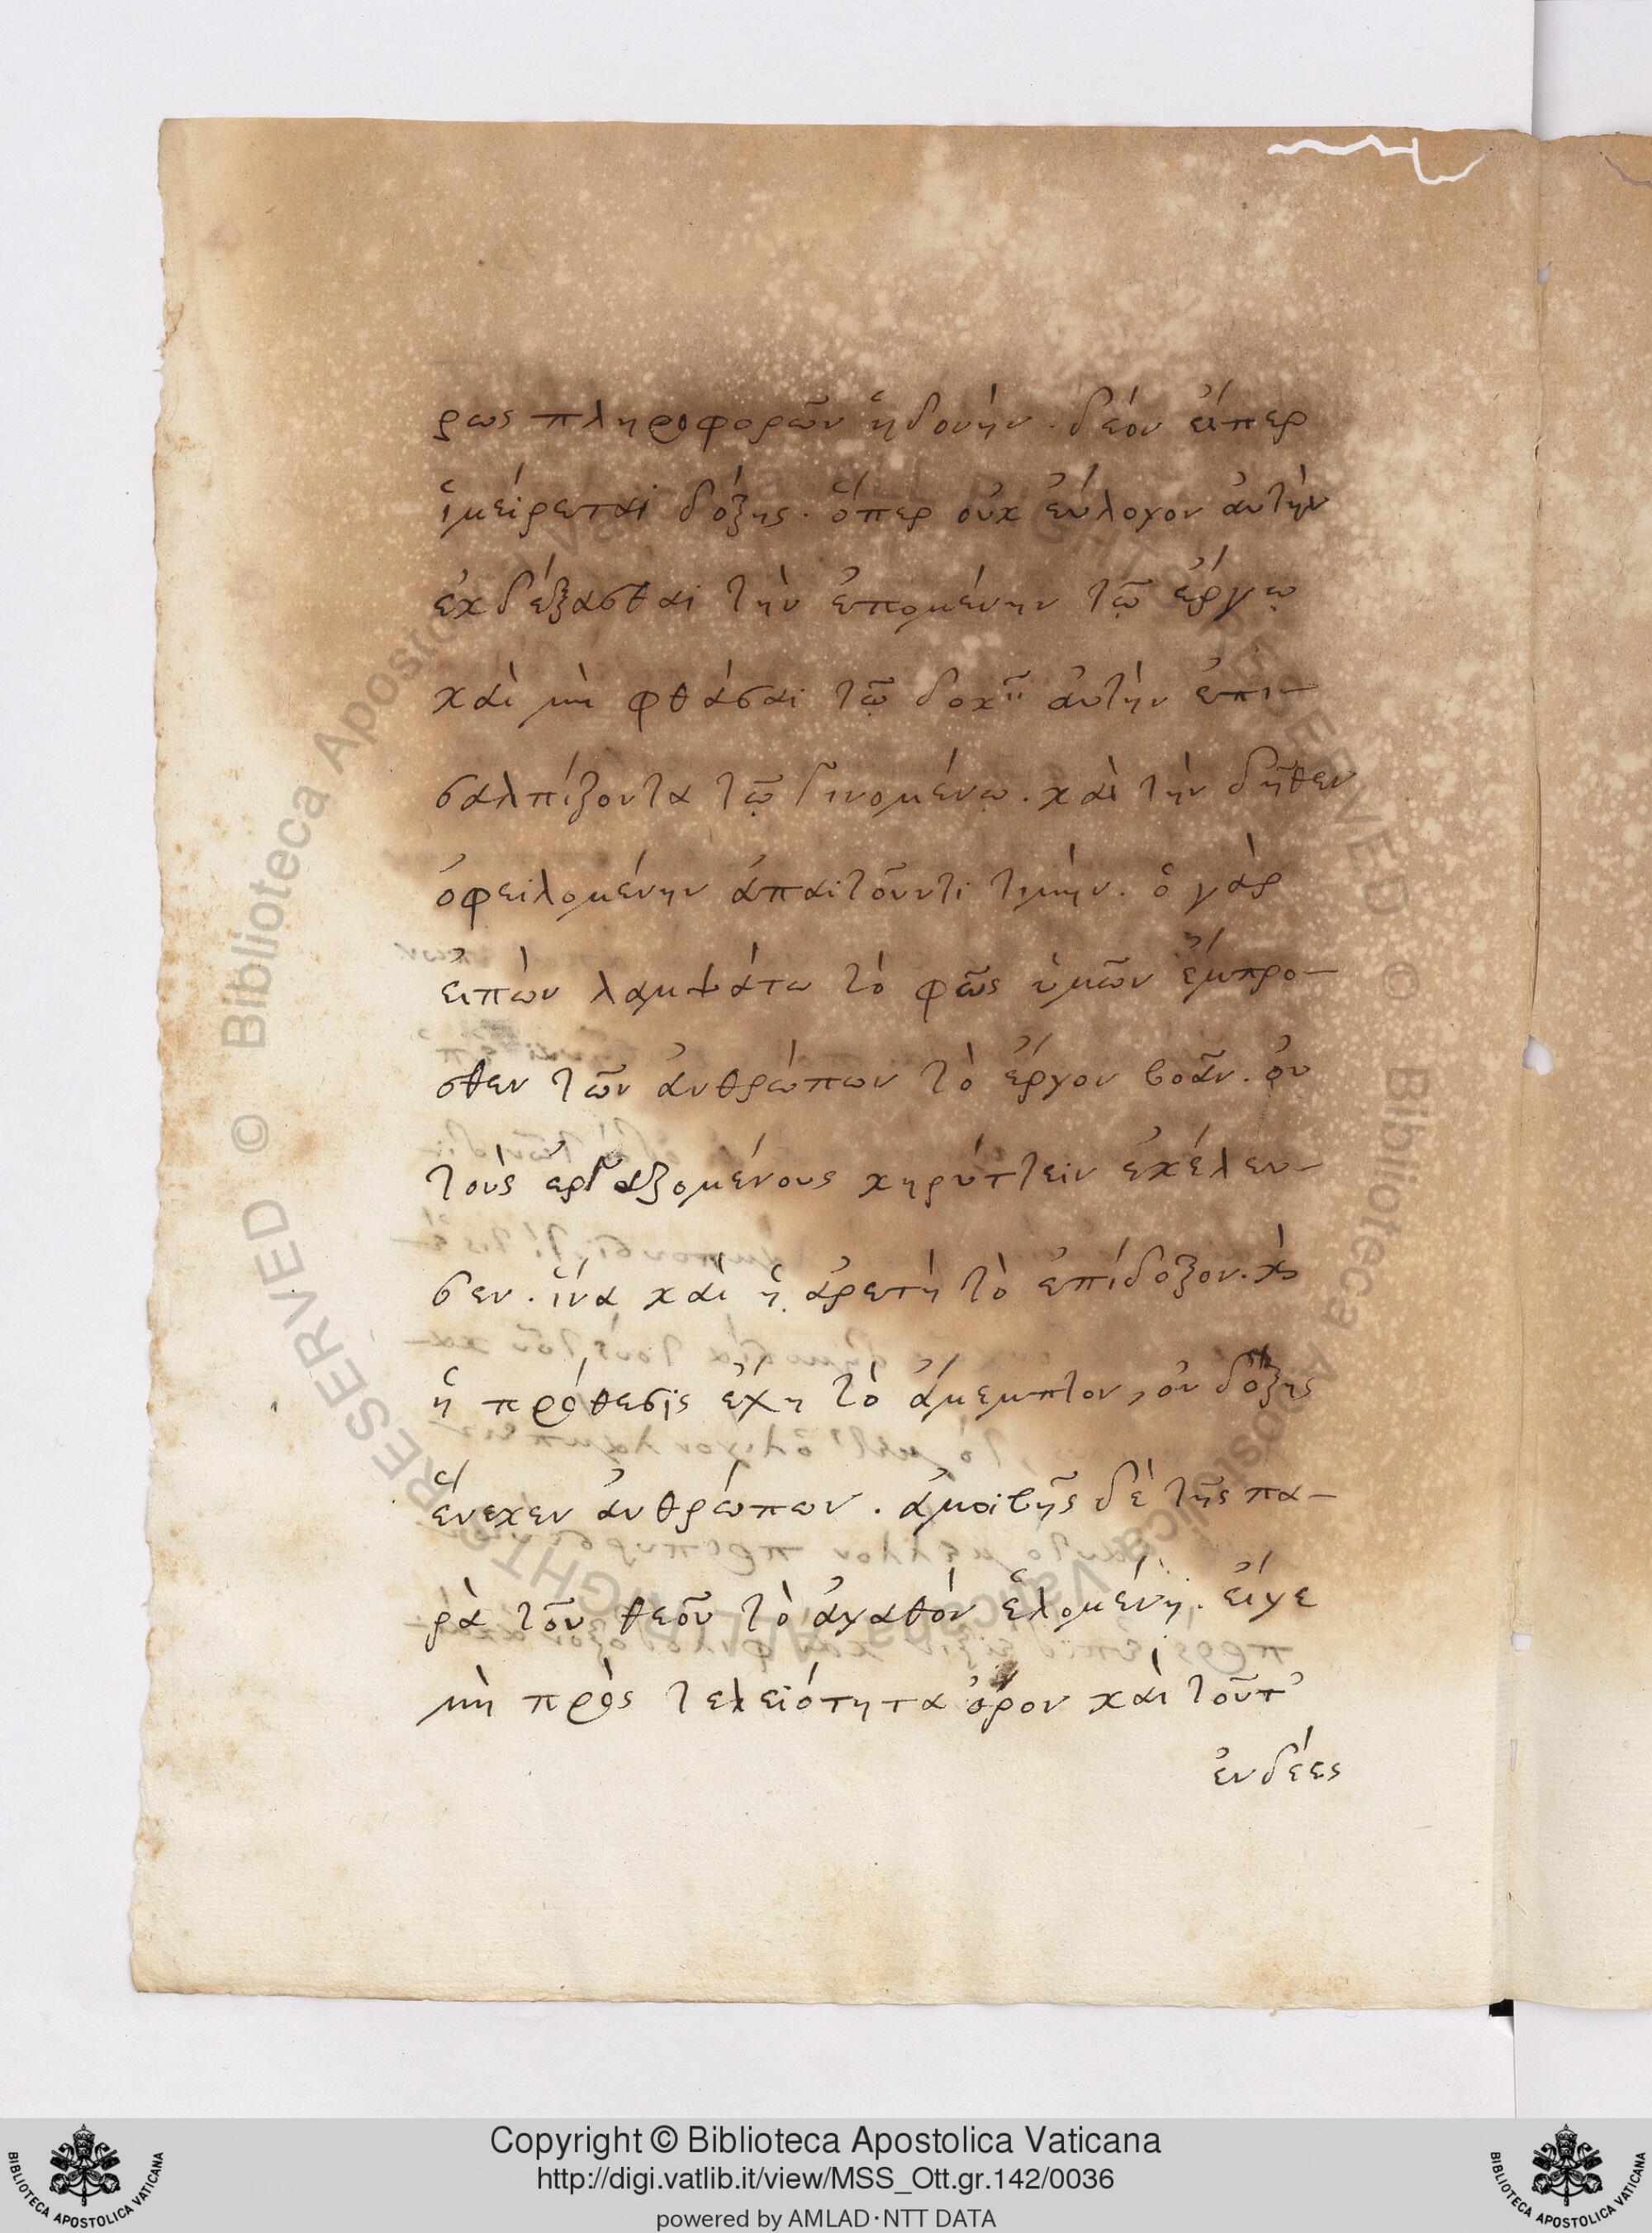 ρως πληροφορῶν ἡδονήν. δέον εἴπερ
ἱμείρεται δόξης. ὅπερ οὐκ εὔλογον ἀυτὴν
ἐκδέξασθαι τὴν ἐπομένην τῷ ἔργῳ
καὶ μὴ φθάσαι τῷ δοκεῖν ἀυτὴν ἐπι-
σαλπίζοντα τῷ γινομένῳ. καὶ τὴν δῆθεν
ὀφειλομένην ἀπαιτοῦντι τιμήν. ὁ γὰρ
εἰπὼν λαμψάτω τὸ φῶς ὑμῶν ἔμπρο-
σθεν τῶν ἀνθρώπων τὸ ἔργον βοᾶν. οὐ
τοὺς ἐργαζομένους κηρύττειν ἐκέλευ-
σεν. ἵνα καὶ ἡ ἀρετὴ τὸ ἐπίδοξον. κὶ
ἡ πρόθεσις ἔχη τὸ ἄμεμπτον, οὐ δόξης
ἕνεκεν ἀνθρώπων. ἀμοιβῆς δὲ τῆς πα-
ρὰ τοῦ θεοῦ τὸ ἀγαθὸν ἑλομένη. εἴγε
μὴ πρὸς τελειότητα ὅρον καὶ τοῦτ'
ἐνδέες
Copyright © Biblioteca Apostolica Vaticana
http://digi.vatlib.it/view/MSS_Ott.gr.142/0036
powered by AMLAD·NTT DATA
BIBLIOTECA APOSTOLICA VATICANA
BIBLIOTECA APOSTOLICA VATICANA
© Biblioteca Apostolica Vaticana ALL RIGHTS RESERVED © Biblioteca Apostolica Vaticana ALL RIGHTS RESERVED